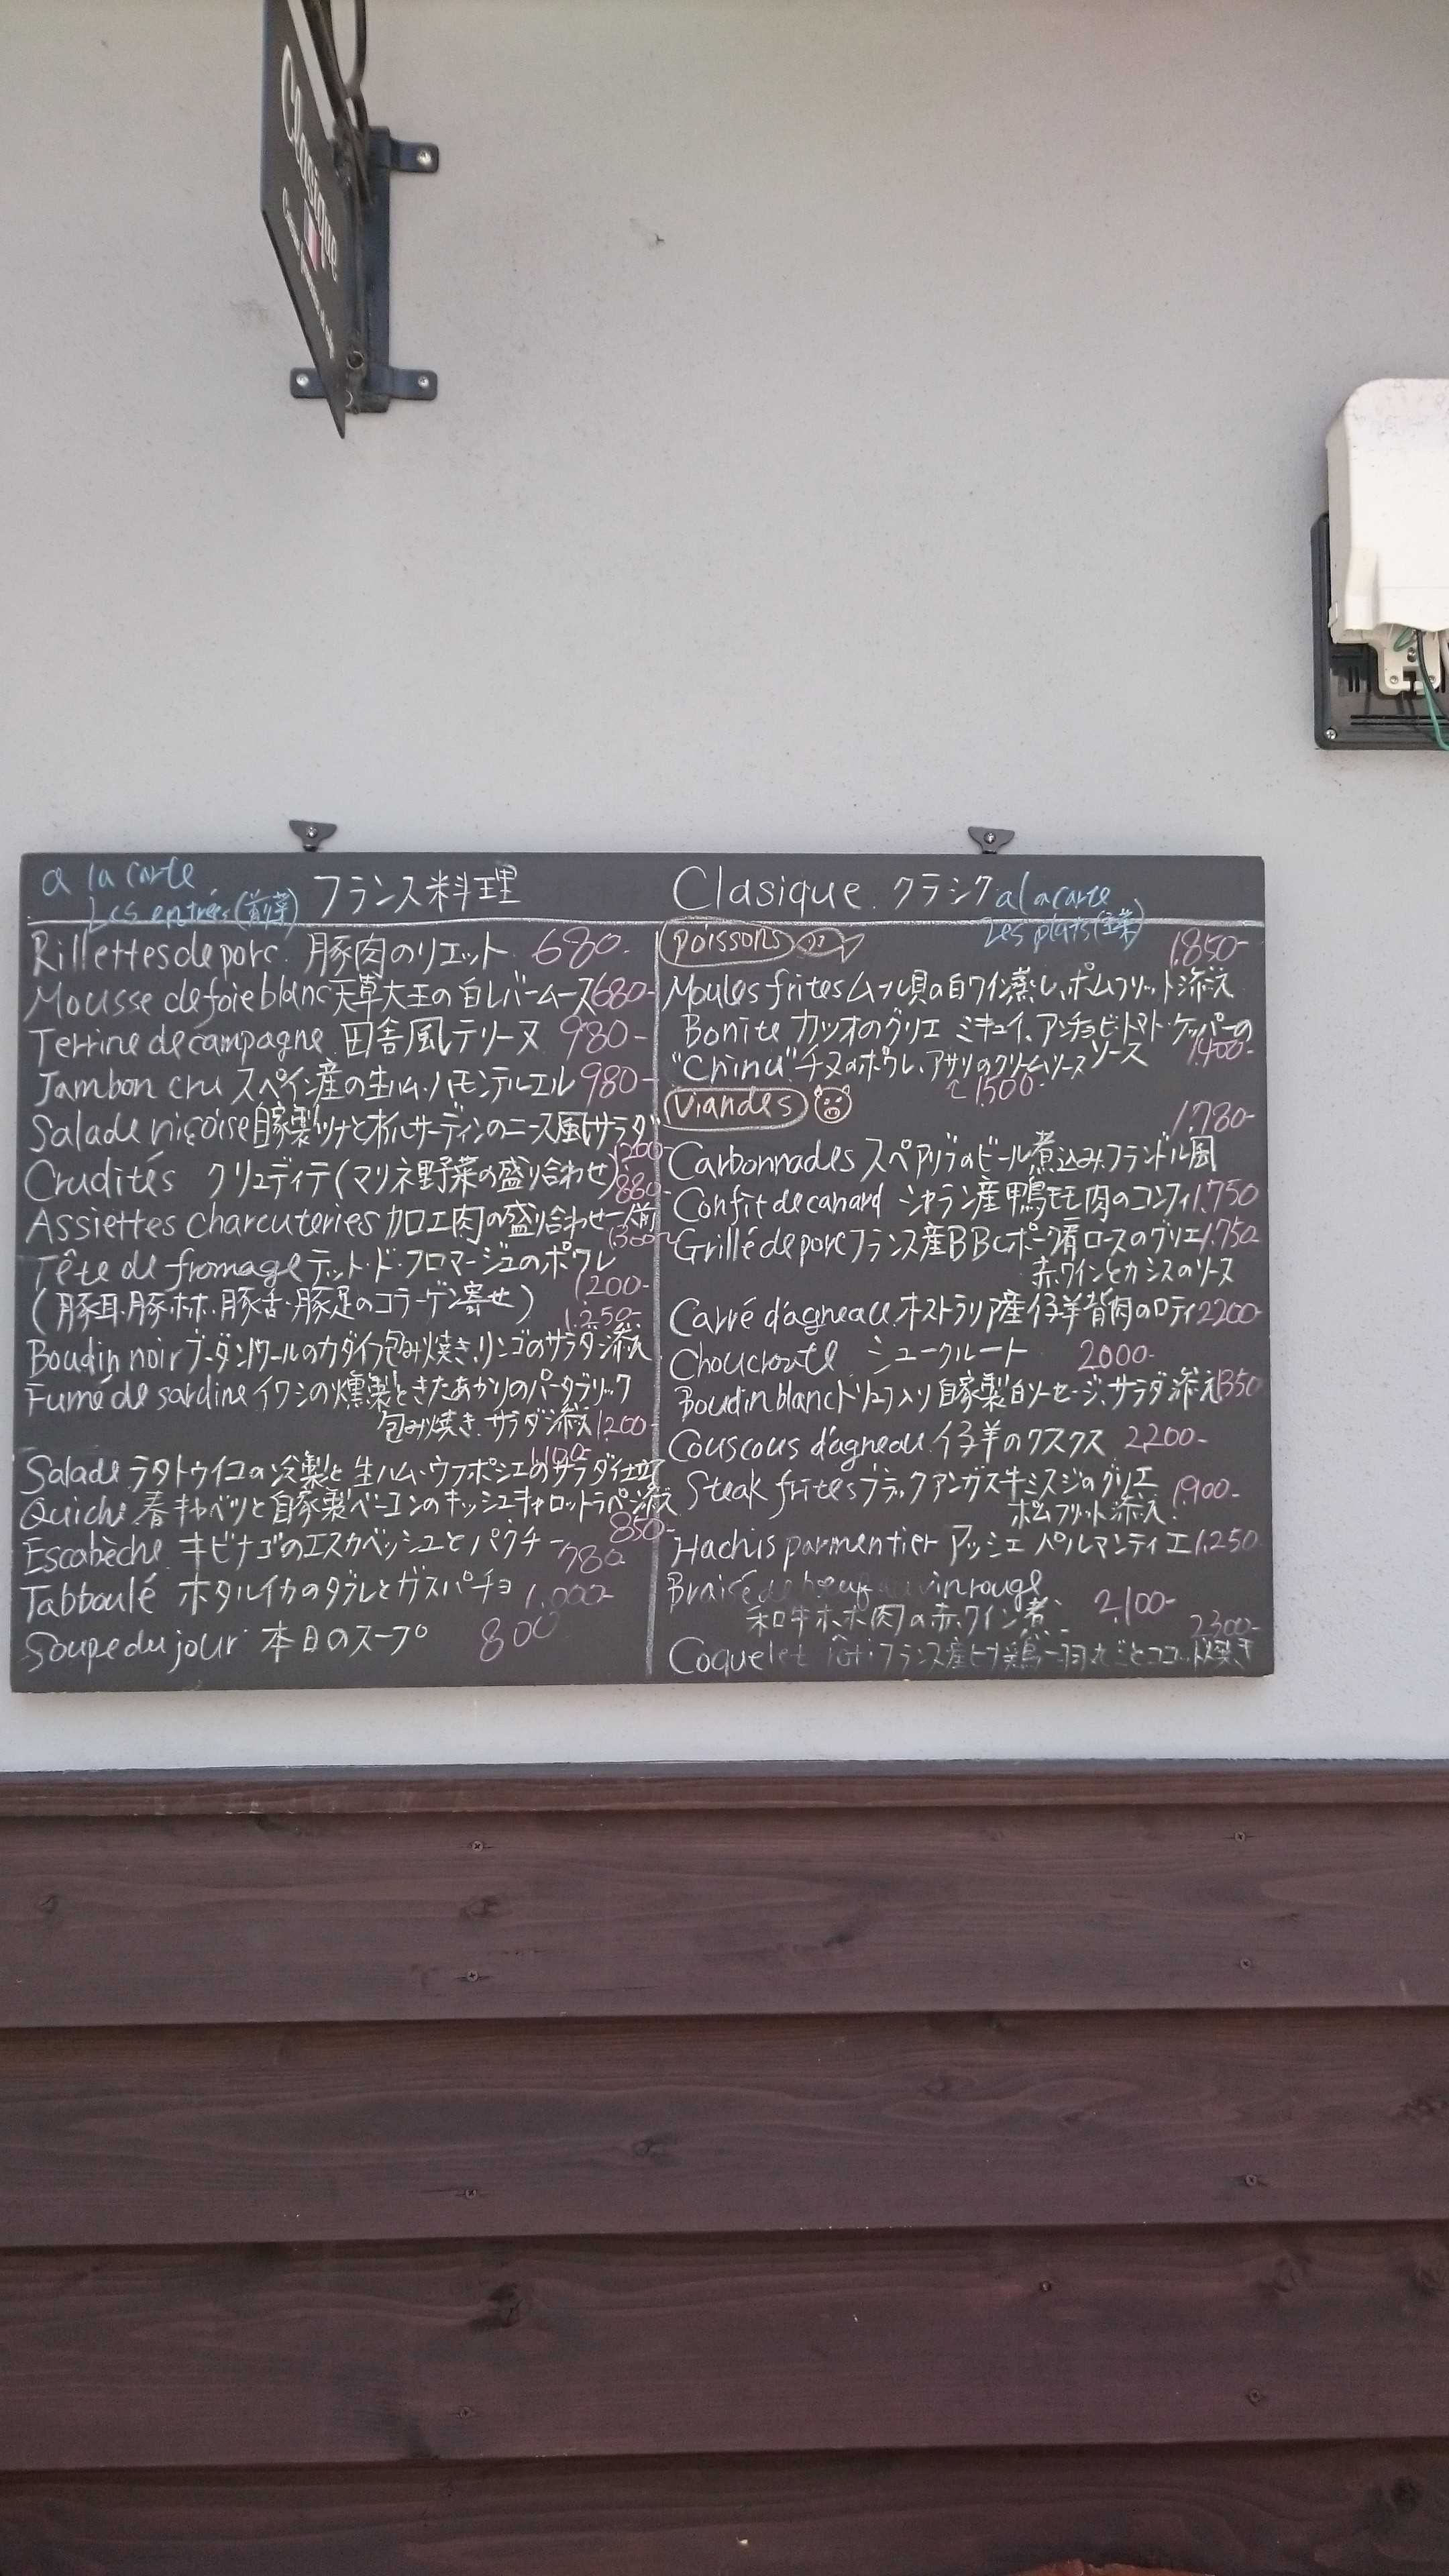 Classique
a la carte
Les entrées(前菜)
フランス料理
Rillettes de porc. 豚肉のリエット 680-
Mousse de foie blanc 天草大王の白レバームース 680-
Terrine de campagne 田舎風テリーヌ 980-
Jambon cru スペイン産の生ハム・ハモンテルエル 980-
Salade niçoise 自家製ツナとオイルサーディンのニース風サラダ
1200-
Crudités クリュディテ(マリネ野菜の盛り合わせ) 880-
Assiettes charcuteries 加工肉の盛り合わせ一人前
1300~
Tête de fromage テット・ド・フロマージュのポワレ
1200-
(豚耳・豚ホホ・豚舌・豚足のコラーゲン寄せ)
1.250-
Boudin noir ブーダンノワールのカダイフ包み焼き、リンゴのサラダ添え
Fumé de sardine イワシの燻製ときたあかりのパータブリック
包み焼き、サラダ添え 1200-
1.100-
Salade ラタトゥイユの冷製と生ハム・ウフポシェのサラダ仕立
Quiche 春キャベツと自家製ベーコンのキッシュキャロットラペ添え
850-
Escabèche キビナゴのエスカベッシュとパクチー 780-
Tabboulé ホタルイカのタブレとガスパチョ 1.000-
Soupe du jour 本日のスープ 800
Clasique クラシク
a la carte
Les plats(主菜)
Poissons
1.850-
Moules frites ムール貝の白ワイン蒸し、ポムフリット添え
Bonite カツオのグリエ ミキュイ、アンチョビ・トマト・ケッパーの
ソース 1.400-
"Chinu" チヌのポワレ、アサリのクリームソース
1.500-
Viandes
1.780-
Carbonnades スペアリブのビール煮込みフランドル風
Confit de canard シャラン産鴨モモ肉のコンフィ 1.750
Grillé de porc フランス産BBCポーク肩ロースのグリエ 1.750
赤ワインとカシスのソース
Carré d'agneau オーストラリア産仔羊背肉のロティ 2200-
Choucroute シュークルート 2000-
Boudin blanc トリュフ入り自家製白ソーセージ、サラダ添え 1350
Couscous d'agneau 仔羊のクスクス 2,200-
Steak frites ブラックアンガス牛ミスジのグリエ
ポムフリット添え 1.900-
Hachis parmentier アッシェ パルマンティエ 1.250
Braisé de bœuf au vin rouge
和牛ホホ肉の赤ワイン煮 2.100-
2300-
Coquelet rôti フランス産ヒナ鶏一羽丸ごとココット焼き